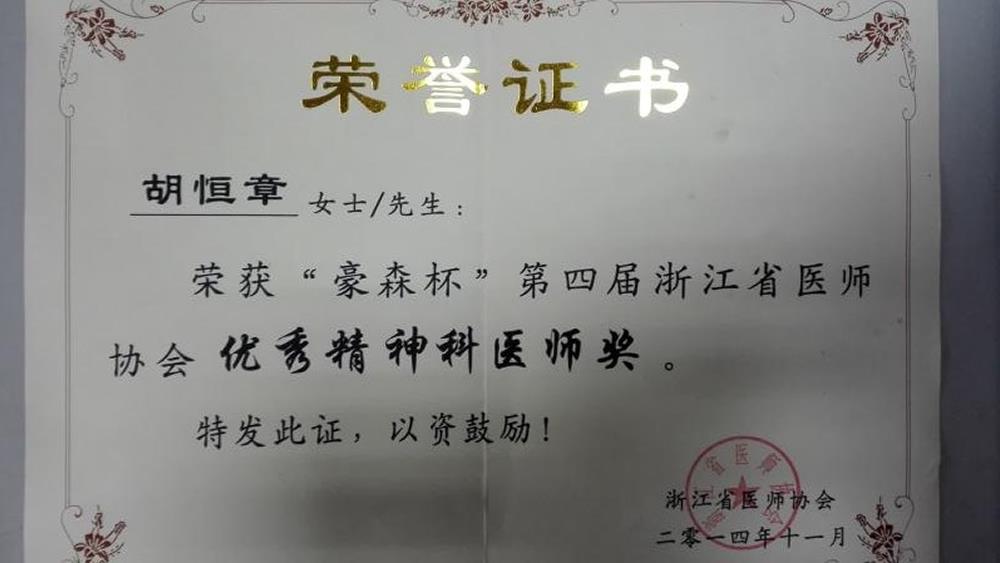 荣誉证书
胡恒章 女士/先生：
荣获“豪森杯”第四届浙江省医师
协会 优秀精神科医师奖 。
特发此证，以资鼓励！
浙江省医师协会
二零一四年十一月